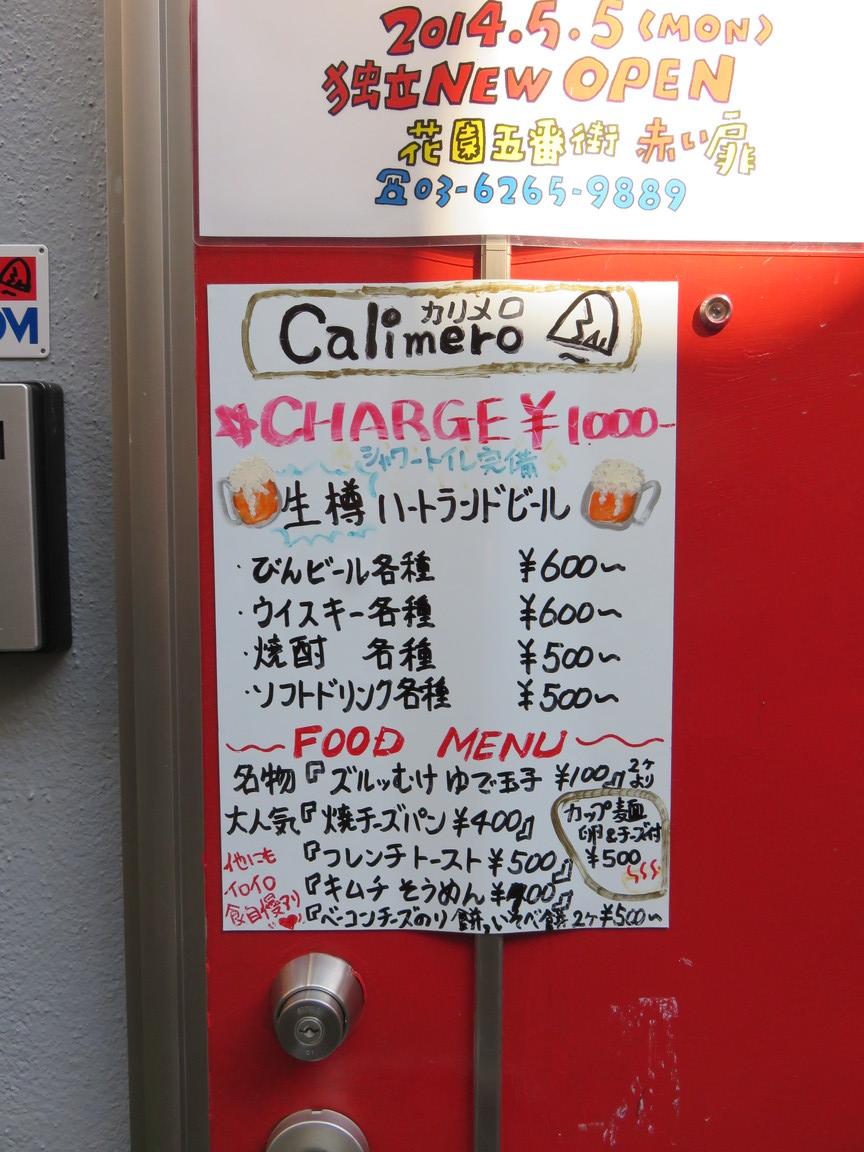 2014.5.5〈MON〉
独立NEW OPEN
花園五番街 赤い扉
☎03-6265-9889
カリメロ
Calimero
☆CHARGE ¥1000-
シャワートイレ完備
生樽ハートランドビール
・びんビール各種 ¥600〜
・ウイスキー各種 ¥600〜
・焼酎 各種 ¥500〜
・ソフトドリンク各種 ¥500〜
〜FOOD MENU〜
名物『ズルッむけ ゆで玉子 ¥100』2ヶより
大人気『焼チーズパン ¥400』
カップ麺
卵&チーズ付
¥500
『フレンチトースト ¥500』
『キムチ そうめん ¥400』
『ベーコンチーズのり餅、いそべ餅 2ヶ¥500〜
他にも
イロイロ
食自慢アリ
OM